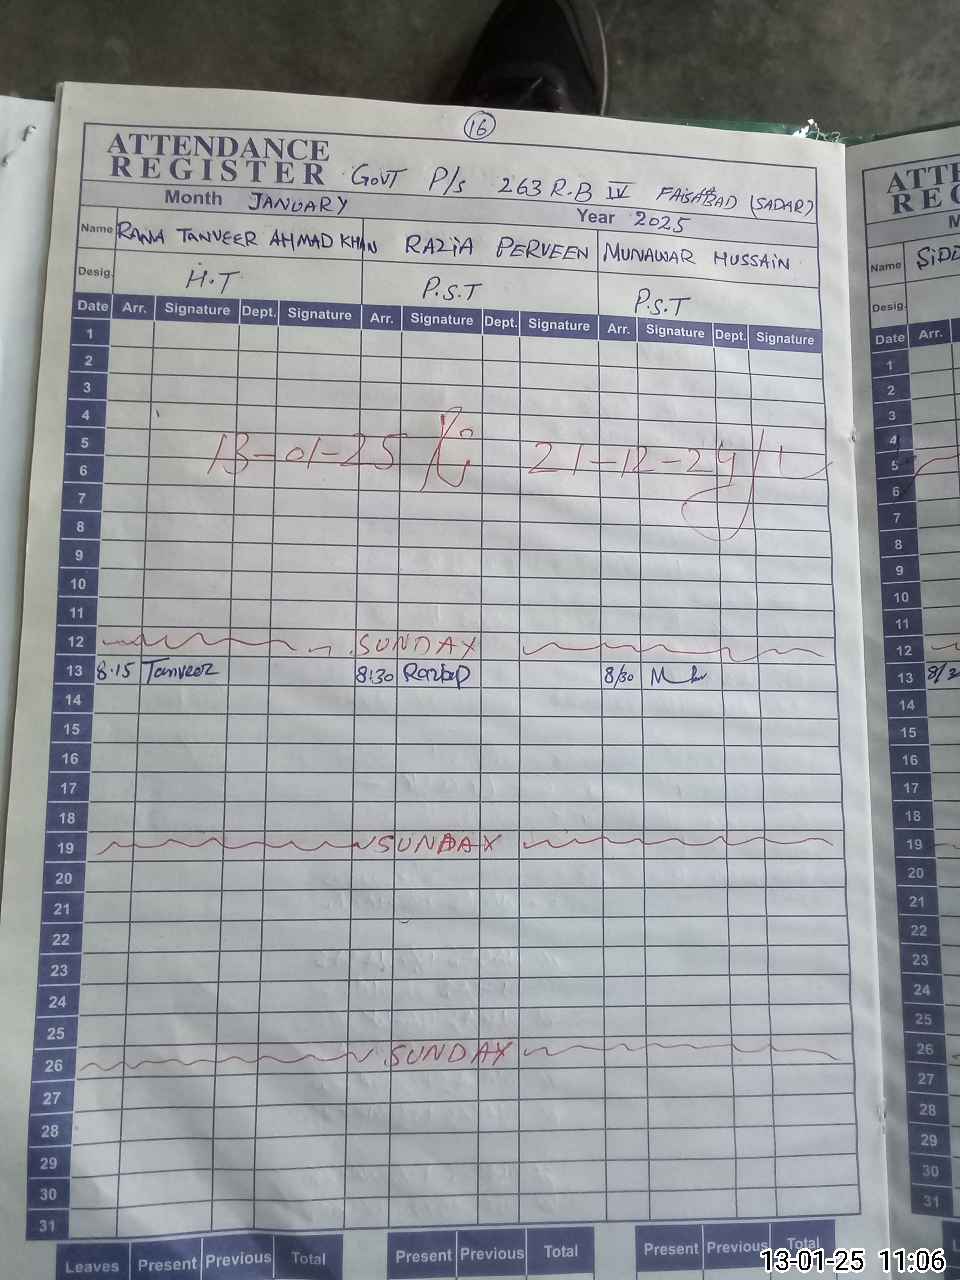 16
ATTENDANCE
REGISTER GOVT P/S 263 R.B IV FAISABAD (SADAR)
Month JANUARY Year 2025
Name RANA TANVEER AHMAD KHAN RAZIA PERVEEN MUNAWAR HUSSAIN
Desig. H.T P.S.T P.S.T
Date Arr. Signature Dept. Signature Arr. Signature Dept. Signature Arr. Signature Dept. Signature
1
2
3
4
5
13-01-25 21-12-24
6
7
8
9
10
11
12 SUNDAY
13 8.15 Tanveer 8:30 8/30
14
15
16
17
18
19 SUNDAY
20
21
22
23
24
25
26 SUNDAY
27
28
29
30
31
Leaves Present Previous Total Present Previous Total Present Previous Total
ATTE
REG
M
Name SIDD
Desig.
Date Arr.
1
2
3
4
5
6
7
8
9
10
11
12
13 8/3
14
15
16
17
18
19
20
21
22
23
24
25
26
27
28
29
30
31
L
13-01-25 11:06